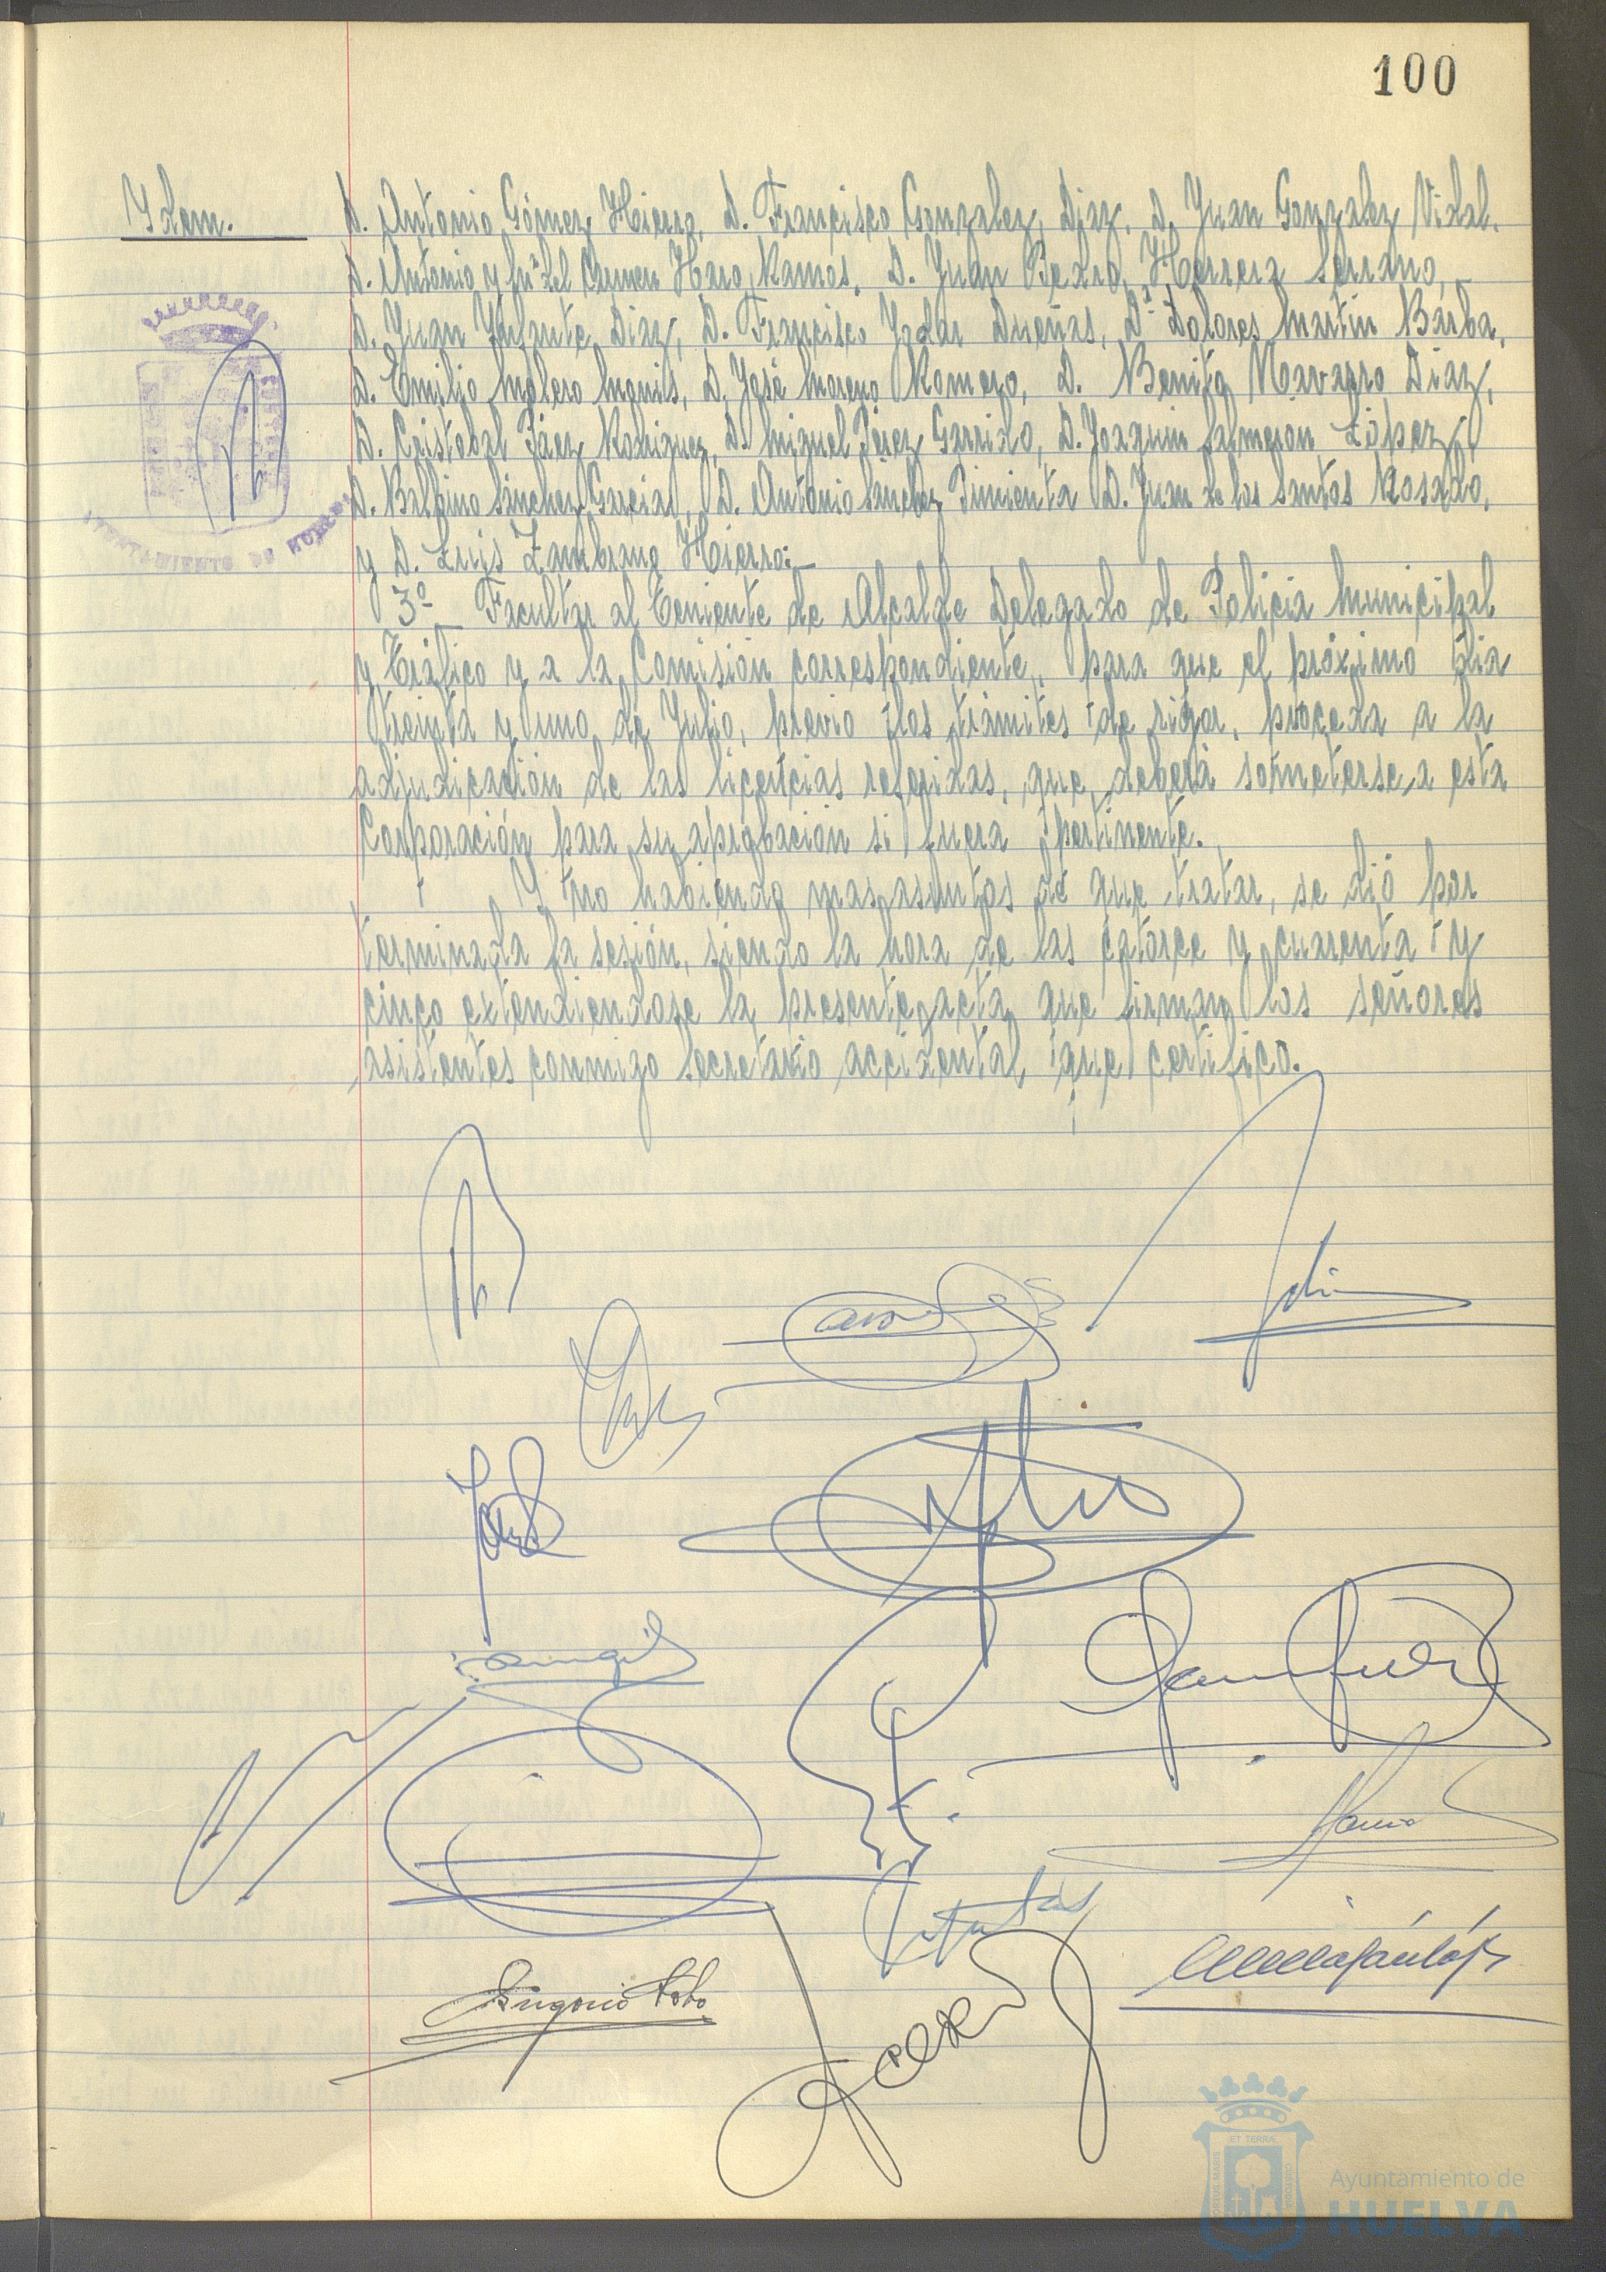 100
Idem.
D. Antonio Gómez Hierro, D. Francisco Gonzalez Diaz, D. Juan Gonzalez Vidal,
D. Antonio y Mª del Carmen Haro Ramos, D. Juan Pedro Herrera Serrano,
D. Juan Infante Diaz, D. Francisco Jodar Dueñas, Dª Dolores Martin Barba,
D. Emilio Molero Monis, D. José Moreno Romero, D. Benito Navarro Diaz,
D. Cristobal Páez Rodriguez, D. Miguel Pérez Garrido, D. Joaquin Salmeron López,
D. Balbino Sánchez Garcias, D. Antonio Sánchez Pimienta D. Juan de los Santos Rosado,
y D. Luis Zambrano Hierro:
3º Facultar al Teniente de Alcalde Delegado de Policia Municipal
y Tráfico y a la Comisión correspondiente, para que el próximo dia
treinta y uno de Julio, previo los trámites de rigor, proceda a la
adjudicación de las licencias referidas, que deberá someterse a esta
Corporación para su aprobación si fuera pertinente.
Y no habiendo mas asuntos de que tratar, se dió por
terminada la sesión, siendo la hora de las catorce y cuarenta y
cinco extendiendose la presente acta que firman los señores
asistentes conmigo Secretario accidental que certifico.
AYUNTAMIENTO DE HUELVA
Eugenio Lobo
ET TERRÆ
PORTUS MARIS
CUSTODIA
Ayuntamiento de
HUELVA